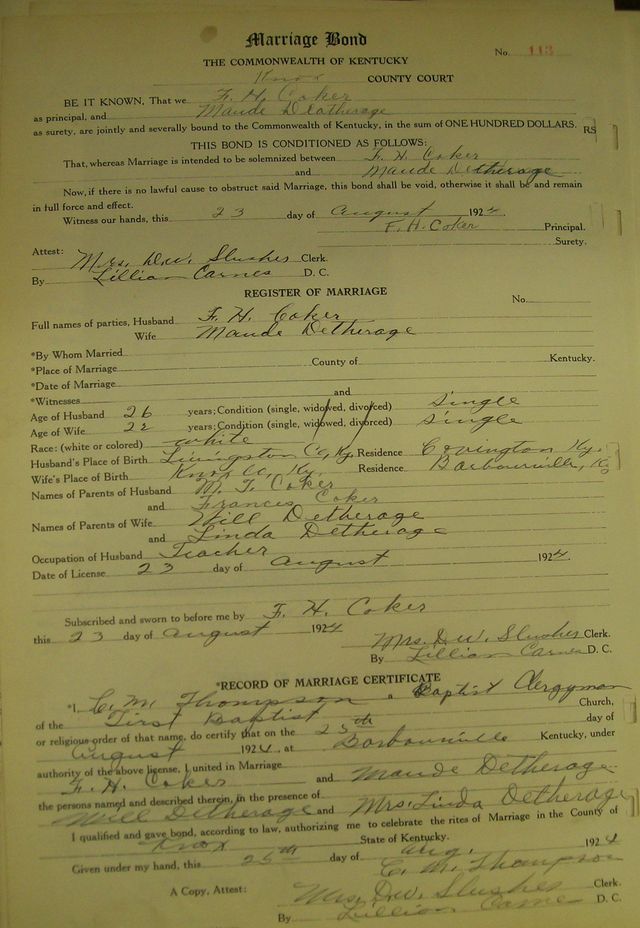 Marriage Bond
No. 113
THE COMMONWEALTH OF KENTUCKY
Knox COUNTY COURT
BE IT KNOWN, That we F. H. Coker
as principal, and Maude Detherage
as surety, are jointly and severally bound to the Commonwealth of Kentucky, in the sum of ONE HUNDRED DOLLARS. RS
THIS BOND IS CONDITIONED AS FOLLOWS:
That, whereas Marriage is intended to be solemnized between F. H. Coker
and Maude Detherage
Now, if there is no lawful cause to obstruct said Marriage, this bond shall be void, otherwise it shall be and remain
in full force and effect.
Witness our hands, this 23 day of August 1924.
F. H. Coker Principal.
Surety.
Attest:
Mrs. D.W. Slusher Clerk.
By Lillian Carnes D. C.
REGISTER OF MARRIAGE
No.
Full names of parties, Husband F. H. Coker
Wife Maude Detherage
*By Whom Married
*Place of Marriage County of Kentucky.
*Date of Marriage
*Witnesses and
Age of Husband 26 years; Condition (single, widowed, divorced) Single
Age of Wife 22 years; Condition (single, widowed, divorced) Single
Race: (white or colored) White
Husband's Place of Birth Livingston Co, Ky. Residence Covington Ky.
Wife's Place of Birth Knox Co, Ky. Residence Barbourville, Ky
Names of Parents of Husband M. T. Coker
and Frances Coker
Names of Parents of Wife Will Detherage
and Linda Detherage
Occupation of Husband Teacher
Date of License 23 day of August 1924.
Subscribed and sworn to before me by F. H. Coker
this 23 day of August 1924
Mrs. D.W. Slusher Clerk.
By Lillian Carnes D. C.
*RECORD OF MARRIAGE CERTIFICATE
*I, C. M. Thompson a Baptist Clergyman
of the First Baptist Church,
or religious order of that name, do certify that on the 25th day of
August 1924, at Barbourville Kentucky, under
authority of the above license, I united in Marriage
F. H. Coker and Maude Detherage
the persons named and described therein, in the presence of
Will Detherage and Mrs. Linda Detherage
I qualified and gave bond, according to law, authorizing me to celebrate the rites of Marriage in the County of
Knox State of Kentucky.
Given under my hand, this 25th day of Aug. 1924
C. M. Thompson
A Copy, Attest: Mrs. D.W. Slusher Clerk.
By Lillian Carnes D. C.